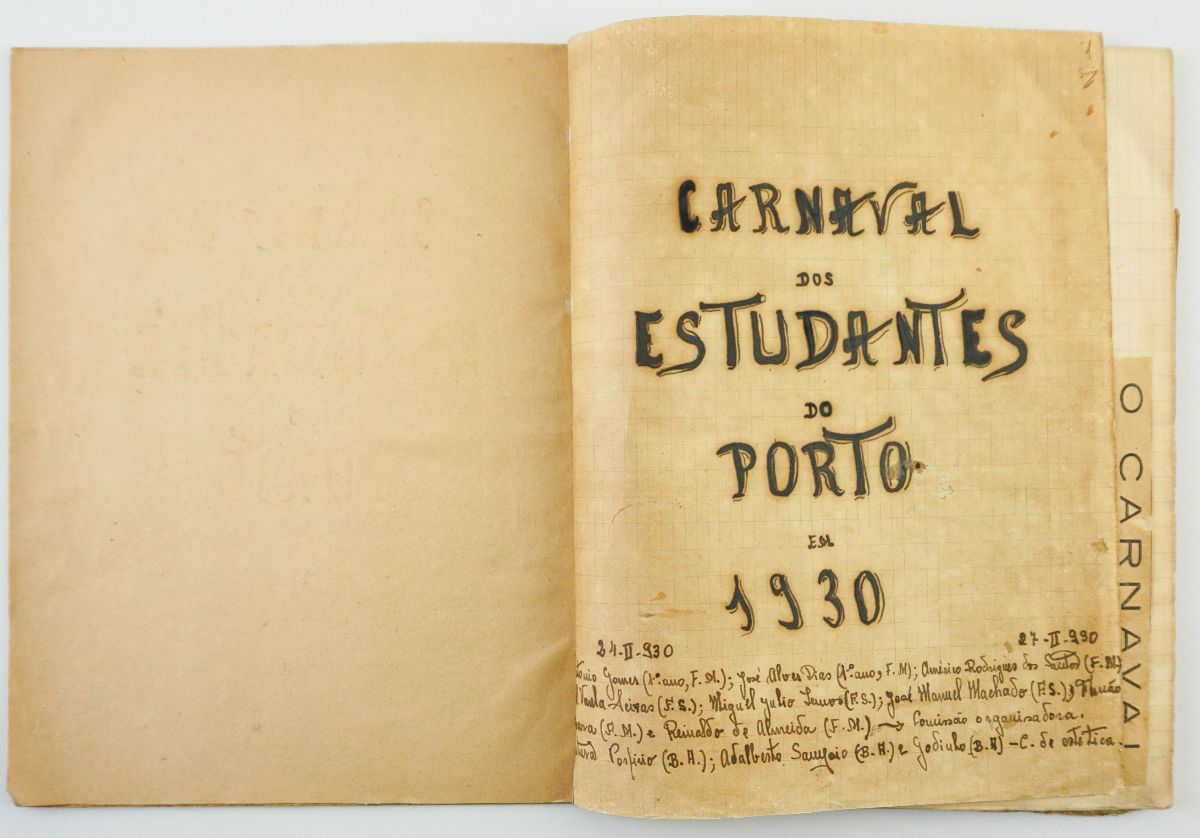 CARNAVAL
DOS
ESTUDANTES
DO
PORTO
EM
1930
24-II-930 27-II-930
Gomes (1.º ano, F.M.); José Alves Dias (1.º ano, F.M); Américo Rodrigues dos Santos (F.M)
(F.S.); Miguel Julio Lemos (F.S.); José Manuel Machado (F.S.);
(P.M.) e Reinaldo de Almeida (F.M.) → Comissão organisadora.
(B.A.); Adalberto Sampaio (B.A.) e Godinho (B.A) - C. de estetica.
O CARNAVAL